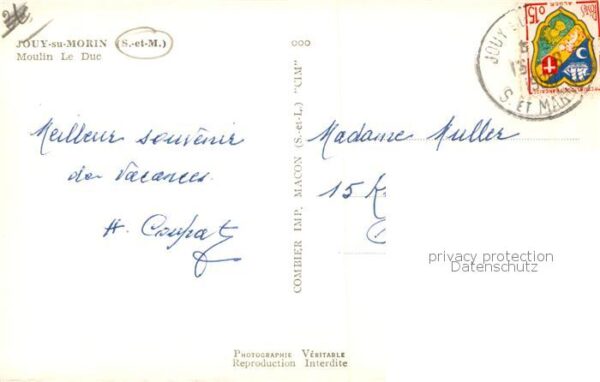 JOUY-su-MORIN (S.-et-M.)
Moulin Le Duc
Meilleur souvenir
de Vacances
H. Coupat
COMBIER IMP. MACON (S.-et-L.) "CIM"
Madame Muller
15
privacy protection
Datenschutz
0,15
ALGER
JOUY
S. ET MAR
PHOTOGRAPHIE VÉRITABLE
Reproduction Interdite